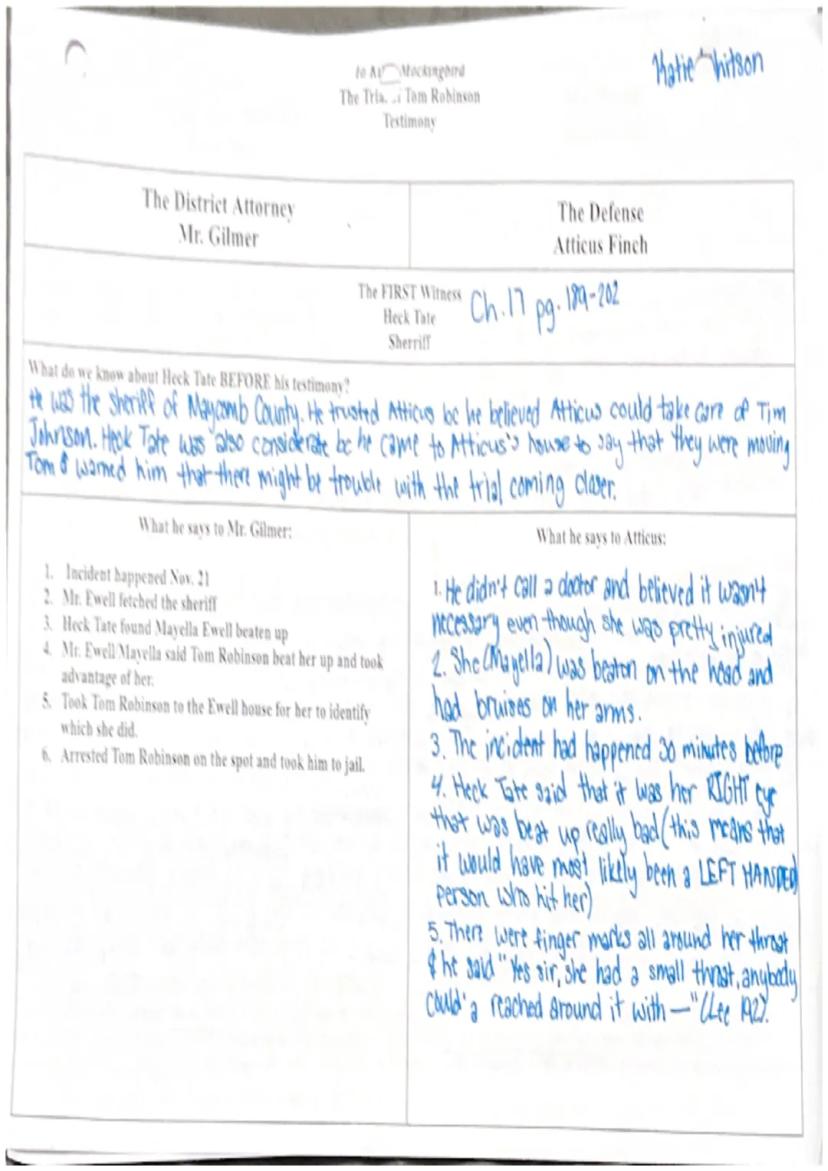 Mockingbird
Tom Robinson
Testimony
Katie
The District Attorney
Mr. Gilmer
The Defense
Atticus Finch
The FIRST Witness
Heck Tate
Sherriff
Ch. 17 pg. 189-202
What do we know about Heck Tate BEFORE his testimony?
He was the sheriff of Maycomb County. He trusted Atticus bc he believed Atticus could take care of Tim
Johnson. Heck Tate was also considerate bc he came to Atticus's house to say that they were moving
Tom & warned him that there might be trouble with the trial coming closer.
What he says to Mr. Gilmer:
1. Incident happened Nov. 21
2. Mr. Ewell fetched the sheriff
3. Heck Tate found Mayella Ewell beaten up
4. Mr. Ewell/Mayella said Tom Robinson beat her up and took
advantage of her.
5. Took Tom Robinson to the Ewell house for her to identify
which she did.
6. Arrested Tom Robinson on the spot and took him to jail.
What he says to Atticus:
1. He didn't call a doctor and believed it wasn't
necessary even though she was pretty injured
2. She (Mayella) was beaton on the head and
had bruises on her arms.
3. The incident had happened 30 minutes before
4. Heck Tate said that it was her RIGHT eye
that was beat up really bad (this means that
it would have most likely been a LEFT HANDED
person who hit her)
5. There were finger marks all around her throat
& he said "Yes sir, she had a small throat, anybody
could'a reached around it with —" (Lee 192).